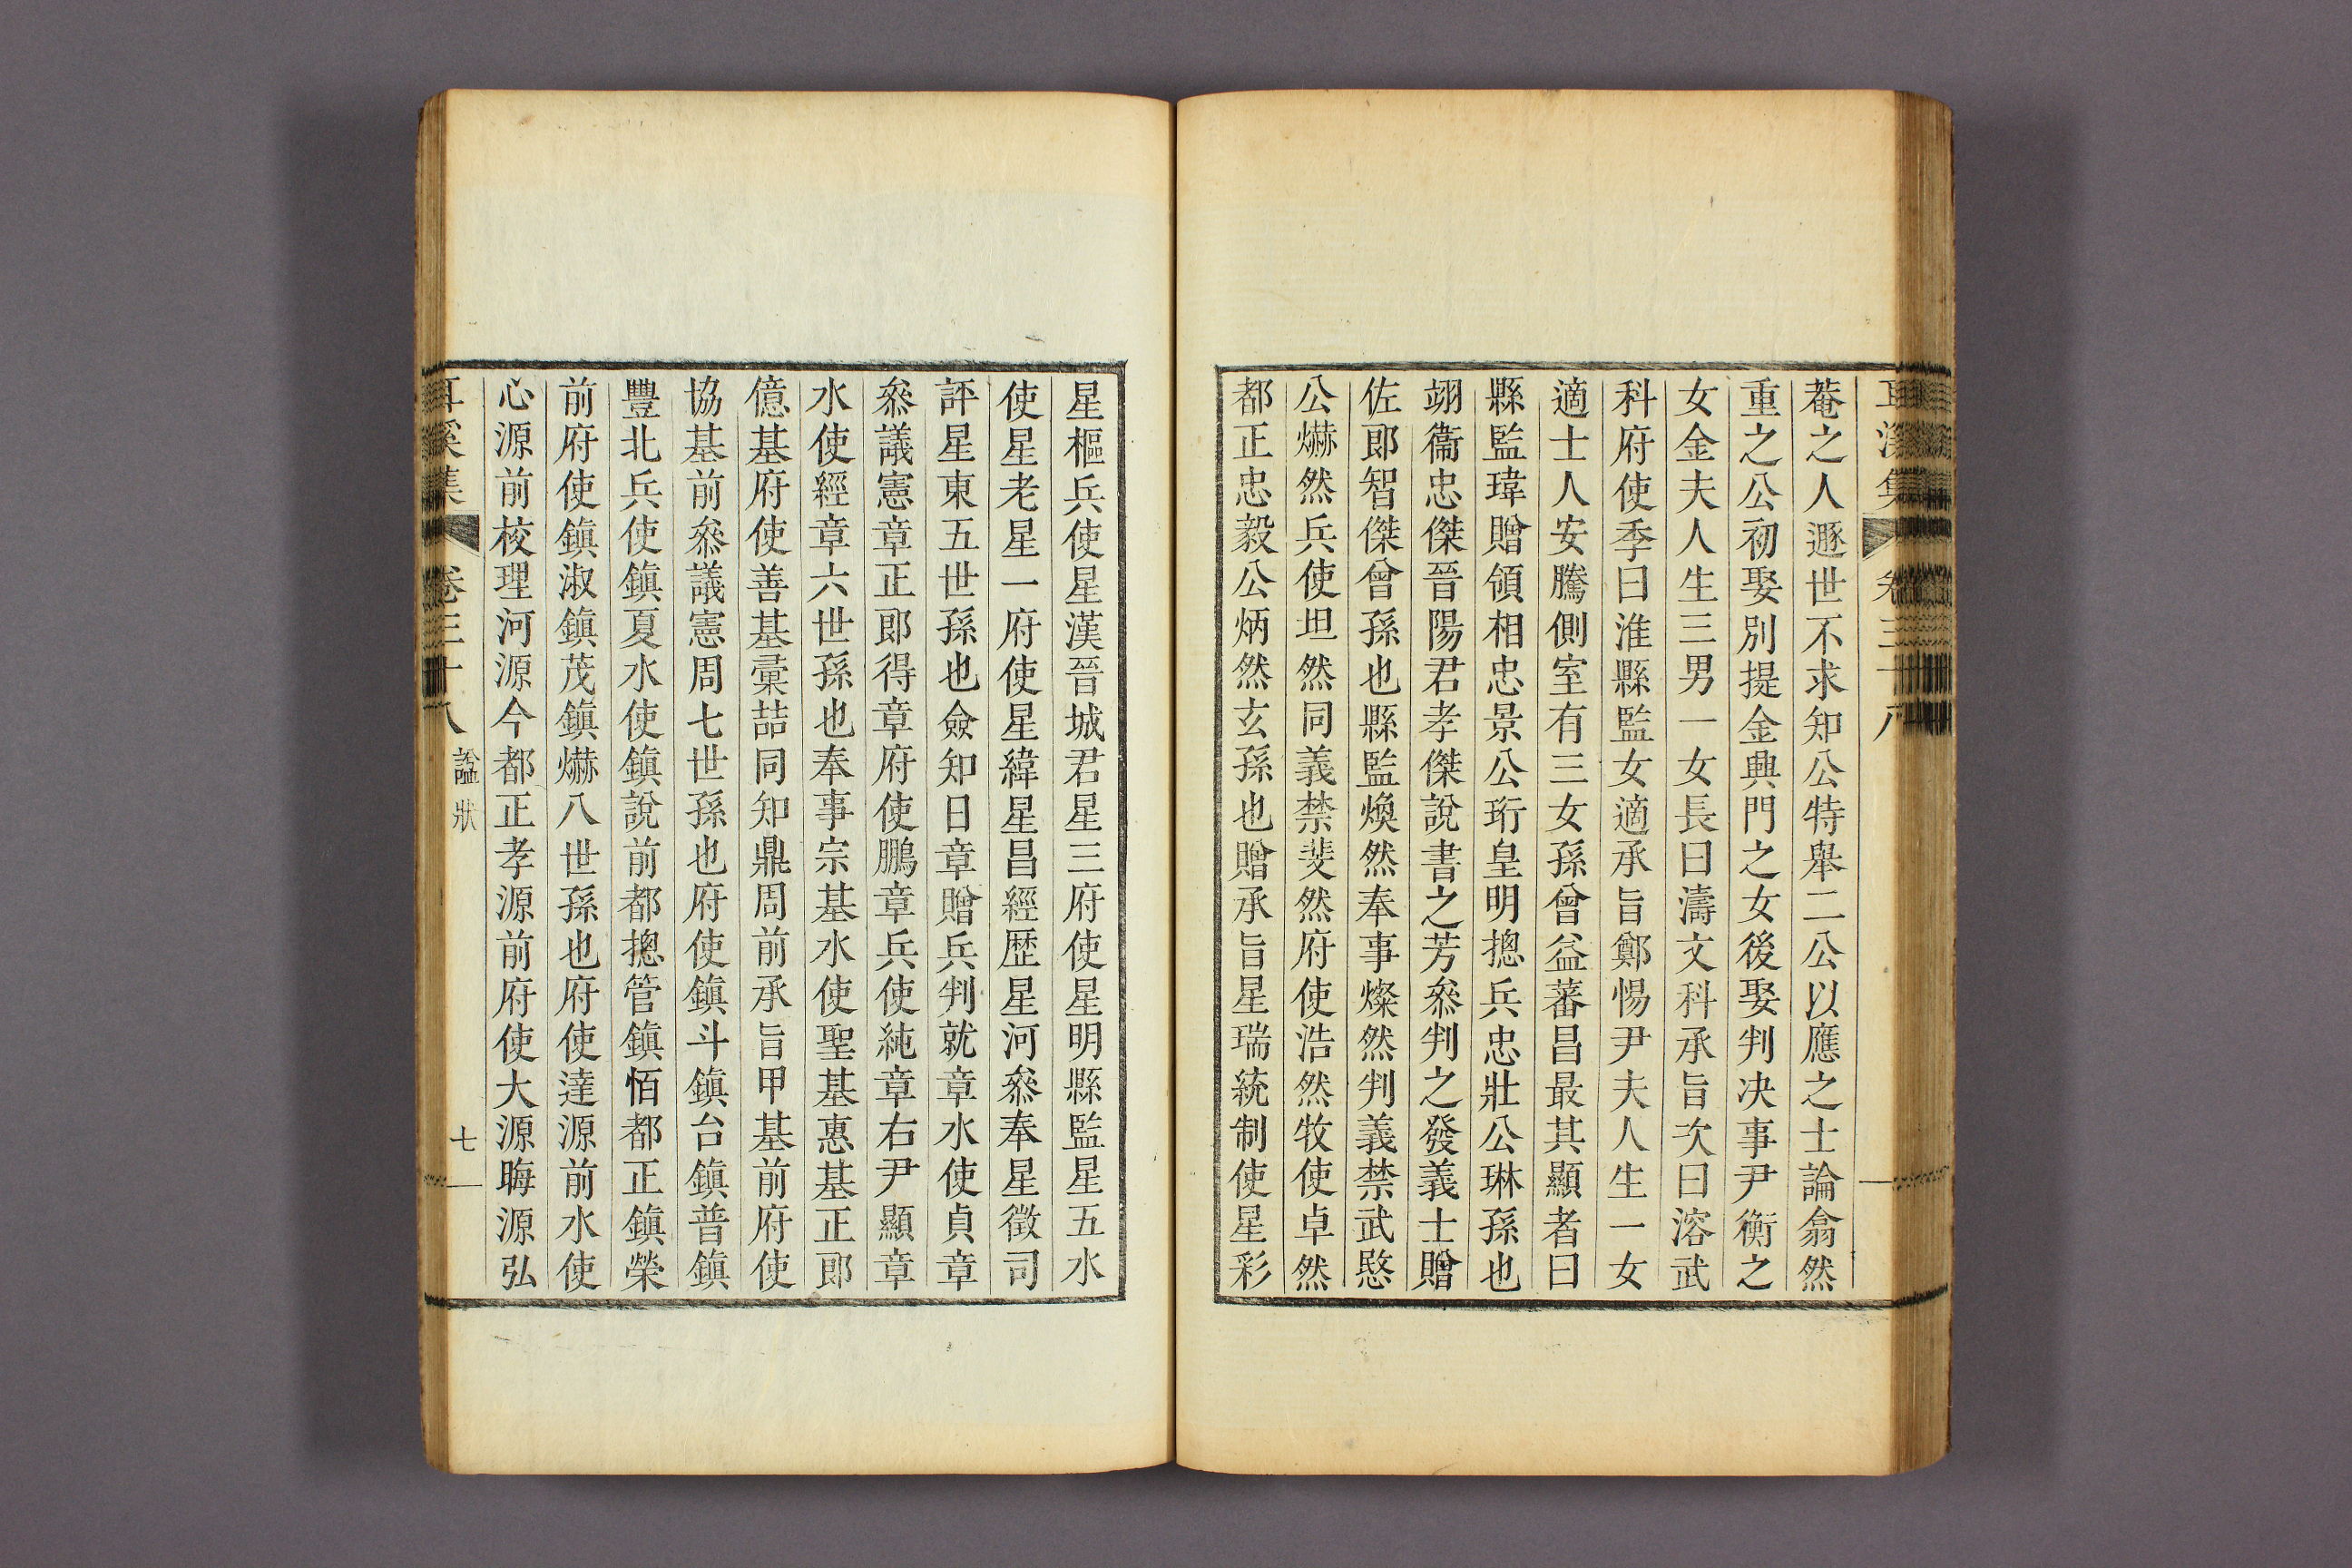 耳溪集 卷三十八
菴之人遯世不求知公特舉二公以應之士論翕然
重之公初娶別提金興門之女後娶判决事尹衡之
女金夫人生三男一女長曰濤文科承旨次曰溶武
科府使季曰淮縣監女適承旨鄭惕尹夫人生一女
適士人安騰側室有三女孫曾益蕃昌最其顯者曰
縣監瑋贈領相忠景公珩皇明摠兵忠壯公琳孫也
翊衞忠傑晉陽君孝傑說書之芳叅判之發義士贈
佐郎智傑曾孫也縣監煥然奉事燦然判義禁武愍
公爀然兵使坦然同義禁斐然府使浩然牧使卓然
都正忠毅公炳然玄孫也贈承旨星瑞統制使星彩
星樞兵使星漢晉城君星三府使星明縣監星五水
使星老星一府使星緯星昌經歷星河叅奉星徵司
評星東五世孫也僉知日章贈兵判就章水使貞章
叅議憲章正郎得章府使鵬章兵使純章右尹顯章
水使經章六世孫也奉事宗基水使聖基惠基正郎
億基府使善基彙喆同知鼎周前承旨甲基前府使
協基前叅議憲周七世孫也府使鎭斗鎭台鎭普鎭
豐北兵使鎭夏水使鎭說前都摠管鎭恒都正鎭榮
前府使鎭淑鎭茂鎭爀八世孫也府使達源前水使
心源前校理河源今都正孝源前府使大源晦源弘
耳溪集 卷三十八 諡狀 七